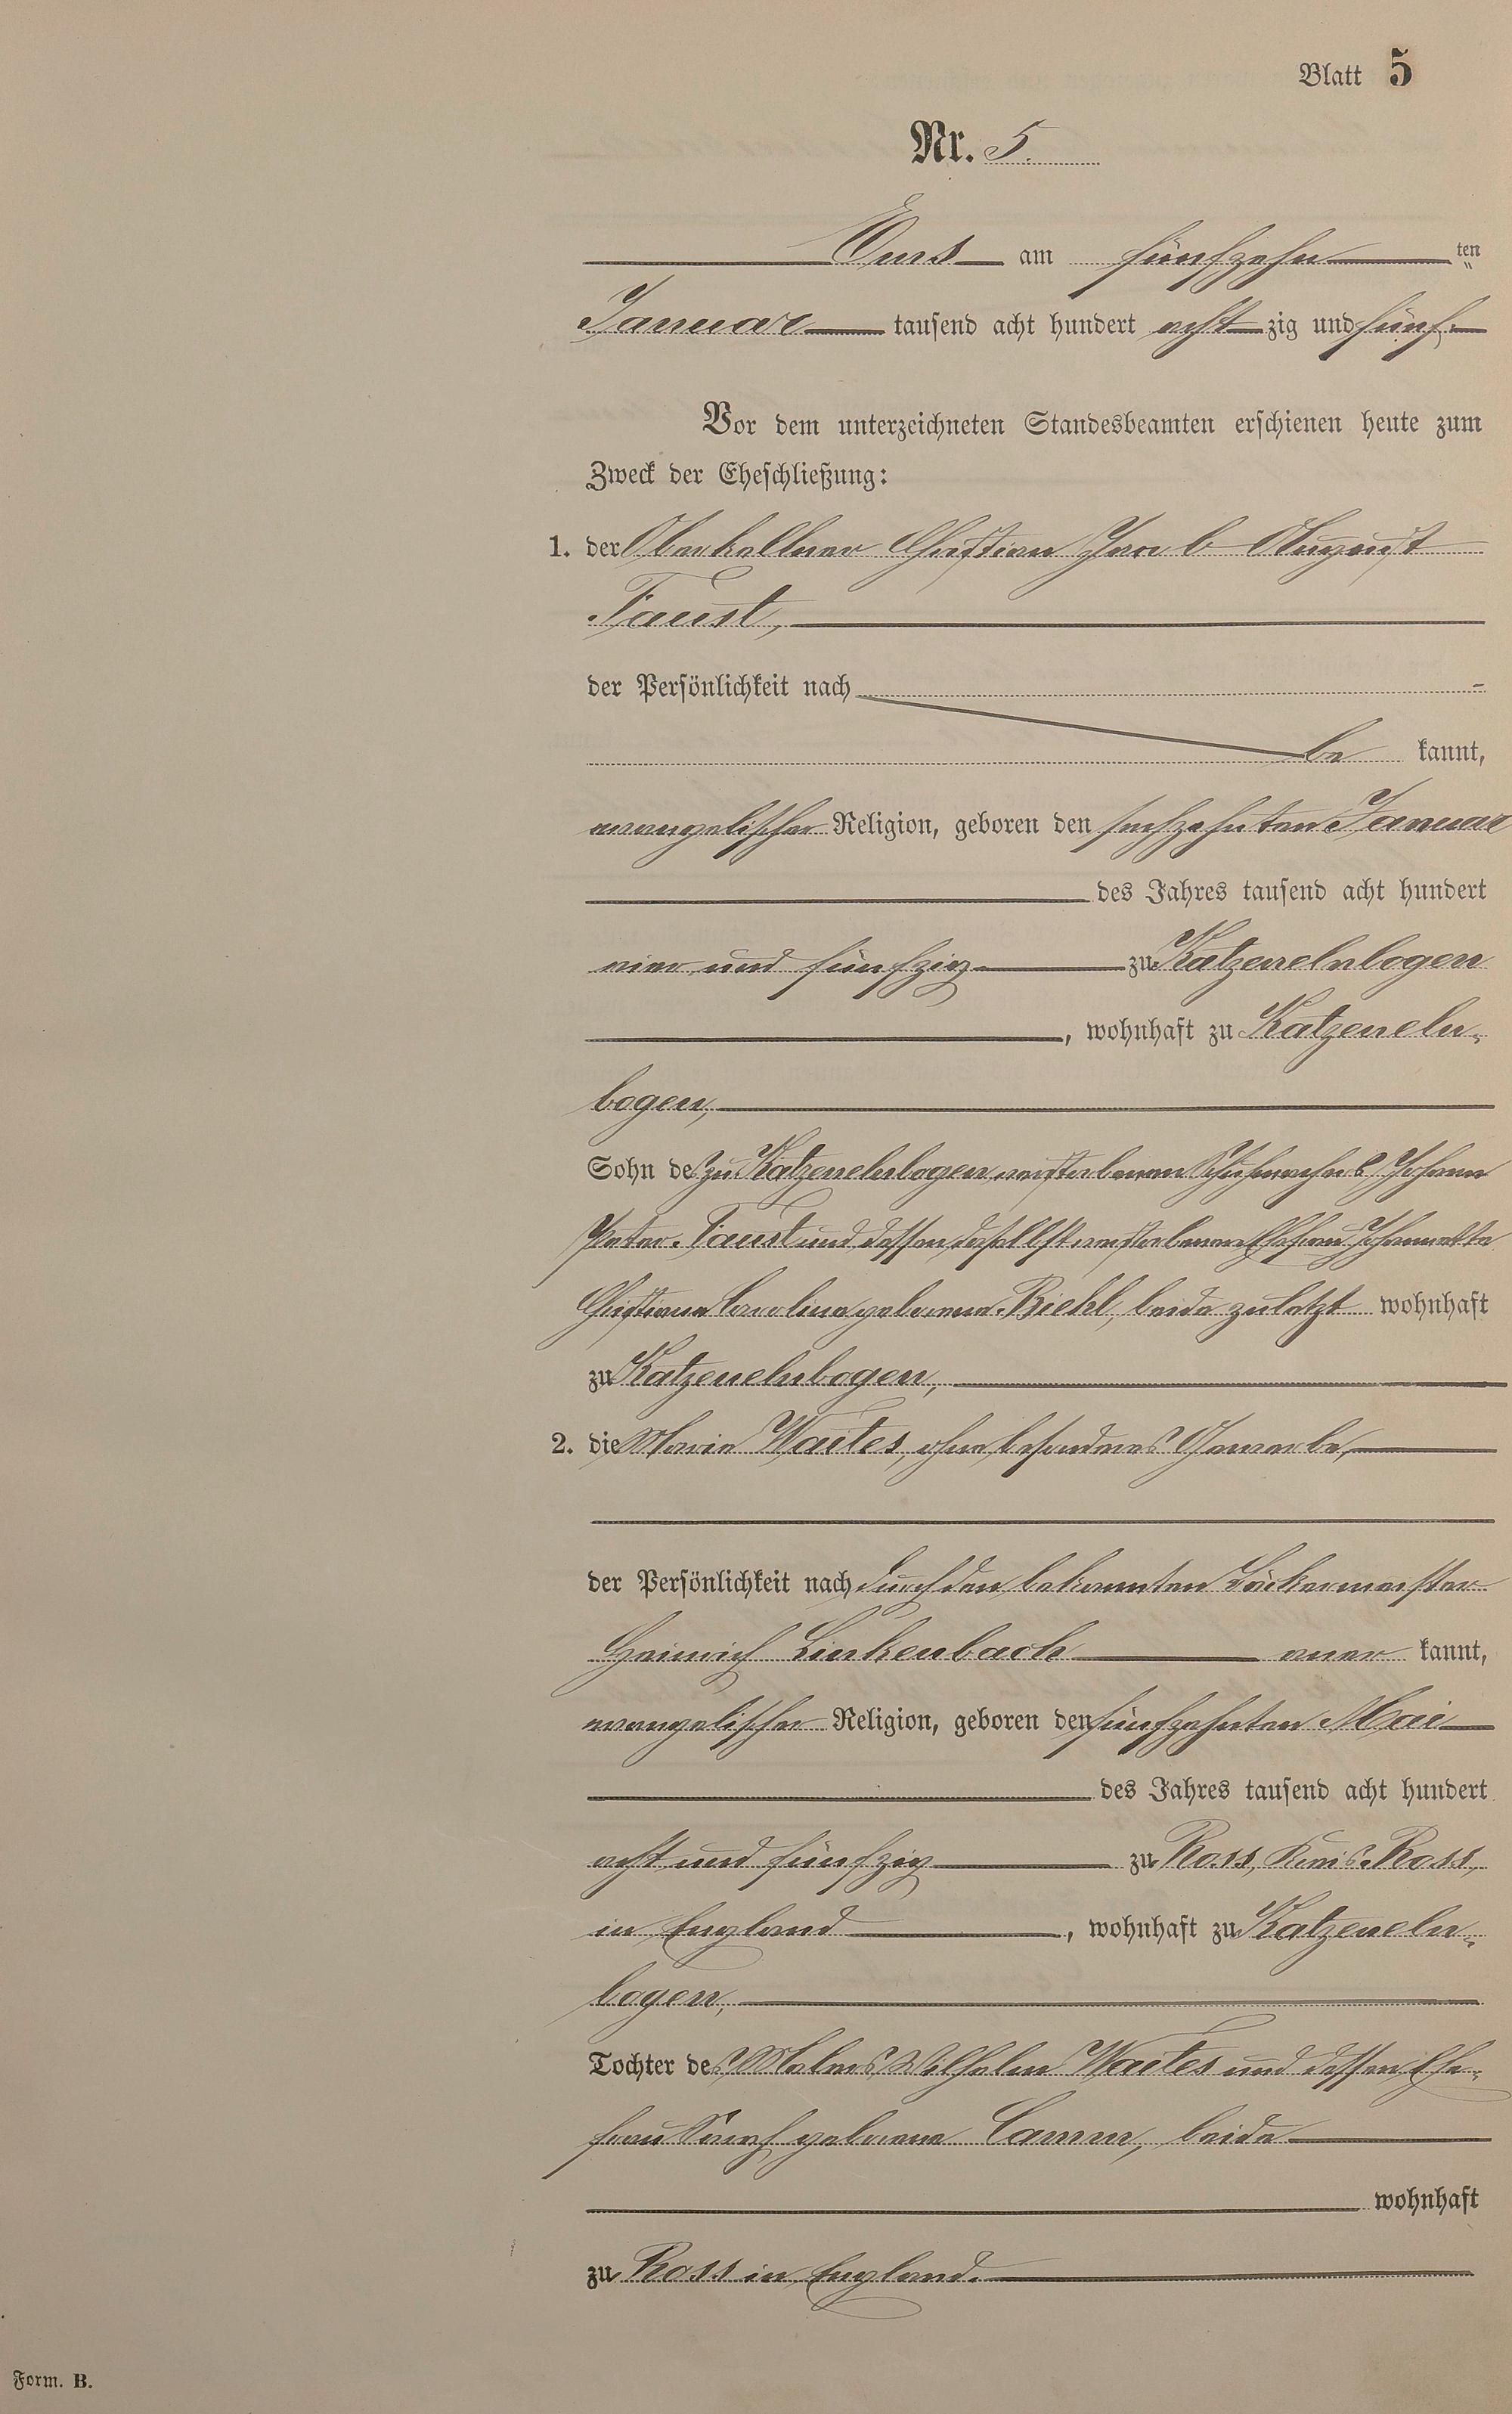 Blatt 5
Nr. 5.
Ems am fünfzehn ten
Januar tausend acht hundert acht zig und fünf
Vor dem unterzeichneten Standesbeamten erschienen heute zum
Zweck der Eheschließung:
1. der Oberkellner Christian Jacob August
Faust,
der Persönlichkeit nach
be kannt,
evangelischer Religion, geboren den sechzehnten Januar
des Jahres tausend acht hundert
vier und fünfzig zu Katzenelnbogen
, wohnhaft zu Katzeneln-
bogen,
Sohn des zu Katzenelnbogen verstorbenen Schuhmachers Johann
Peter Faust und dessen daselbst verstorbenen Ehefrau Johannette
Christiane Caroline geborene Biehl, beide zuletzt wohnhaft
zu Katzenelnbogen,
2. die Marie Waites, ohne besonderes Gewerbe,
der Persönlichkeit nach durch den bekannten Bäckermeister
Heinrich Linkenbach aner kannt,
evangelischer Religion, geboren den fünfzehnten Mai
des Jahres tausend acht hundert
acht und fünfzig zu Ross, Kreis Ross,
in England , wohnhaft zu Katzeneln-
bogen,
Tochter des Malers Wilhelm Waites und dessen Ehe-
frau Sarah geborene Camm, beide
wohnhaft
zu Ross in England.
Form. B.